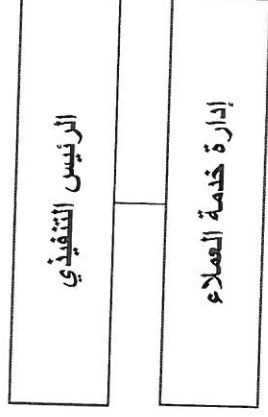 الرئيس التنفيذي
إدارة خدمة العملاء